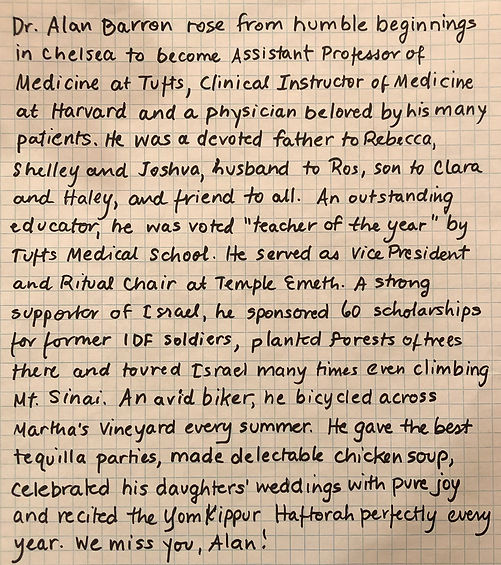 Dr. Alan Barron rose from humble beginnings
in Chelsea to become Assistant Professor of
Medicine at Tufts, Clinical Instructor of Medicine
at Harvard and a physician beloved by his many
patients. He was a devoted father to Rebecca,
Shelley and Joshua, husband to Ros, son to Clara
and Haley, and friend to all. An outstanding
educator, he was voted "teacher of the year" by
Tufts Medical School. He served as Vice President
and Ritual Chair at Temple Emeth. A strong
supporter of Israel, he sponsored 60 scholarships
for former IDF soldiers, planted forests of trees
there and toured Israel many times even climbing
Mt. Sinai. An avid biker, he bicycled across
Martha's Vineyard every summer. He gave the best
tequilla parties, made delectable chicken soup,
celebrated his daughters' weddings with pure joy
and recited the Yom Kippur Haftorah perfectly every
year. We miss you, Alan!